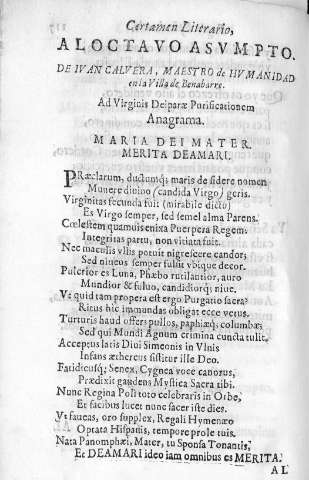 Certamen Literario,
AL OCTAVO ASVMPTO.
DE IVAN CALVERA, MAESTRO de HVMANIDAD
en la Villa de Benabarre.
Ad Virginis Deiparæ Purificationem
Anagrama.
MARIA DEI MATER.
MERITA DEAMARI.
PRæclarum, ductumq; maris de sidere nomen
Munere divino (candida Virgo) geris.
Virginitas fecunda fuit (mirabile dictu)
Es Virgo semper, sed semel alma Parens.
Cœlestem quamuis enixa Puerpera Regem:
Integritas partu, non vitiata fuit.
Nec maculis vllis potuit nigrescere candor;
Sed niueus semper fulsit vbique decor.
Pulcrior es Luna, Phæbo rutilantior, auro
Mundior & fuluo, candidiorq; niue.
Vt quid tam propera est ergo Purgatio sacra?
Ritus hic immundas obligat ecce verus.
Turturis haud offers pullos, paphiæq; columbæ;
Sed qui Mundi Agnum crimina cuncta tulit.
Acceptus latis Diui Simeonis in Vlnis
Infans æthereus sistitur ille Deo.
Fatidicusq; Senex, Cygnea voce canorus,
Prædixit gaudens Mystica Sacra tibi.
Nunc Regina Poli toto celebraris in Orbe,
Et facibus lucet nunc sacer iste dies.
Vt faueas, oro supplex, Regali Hymenæo
Optata Hispanis, tempore prole tuis.
Nata Panomphæi, Mater, tu Sponsa Tonantis,
Et DEAMARI ideo iam omnibus es MERITA.
AL